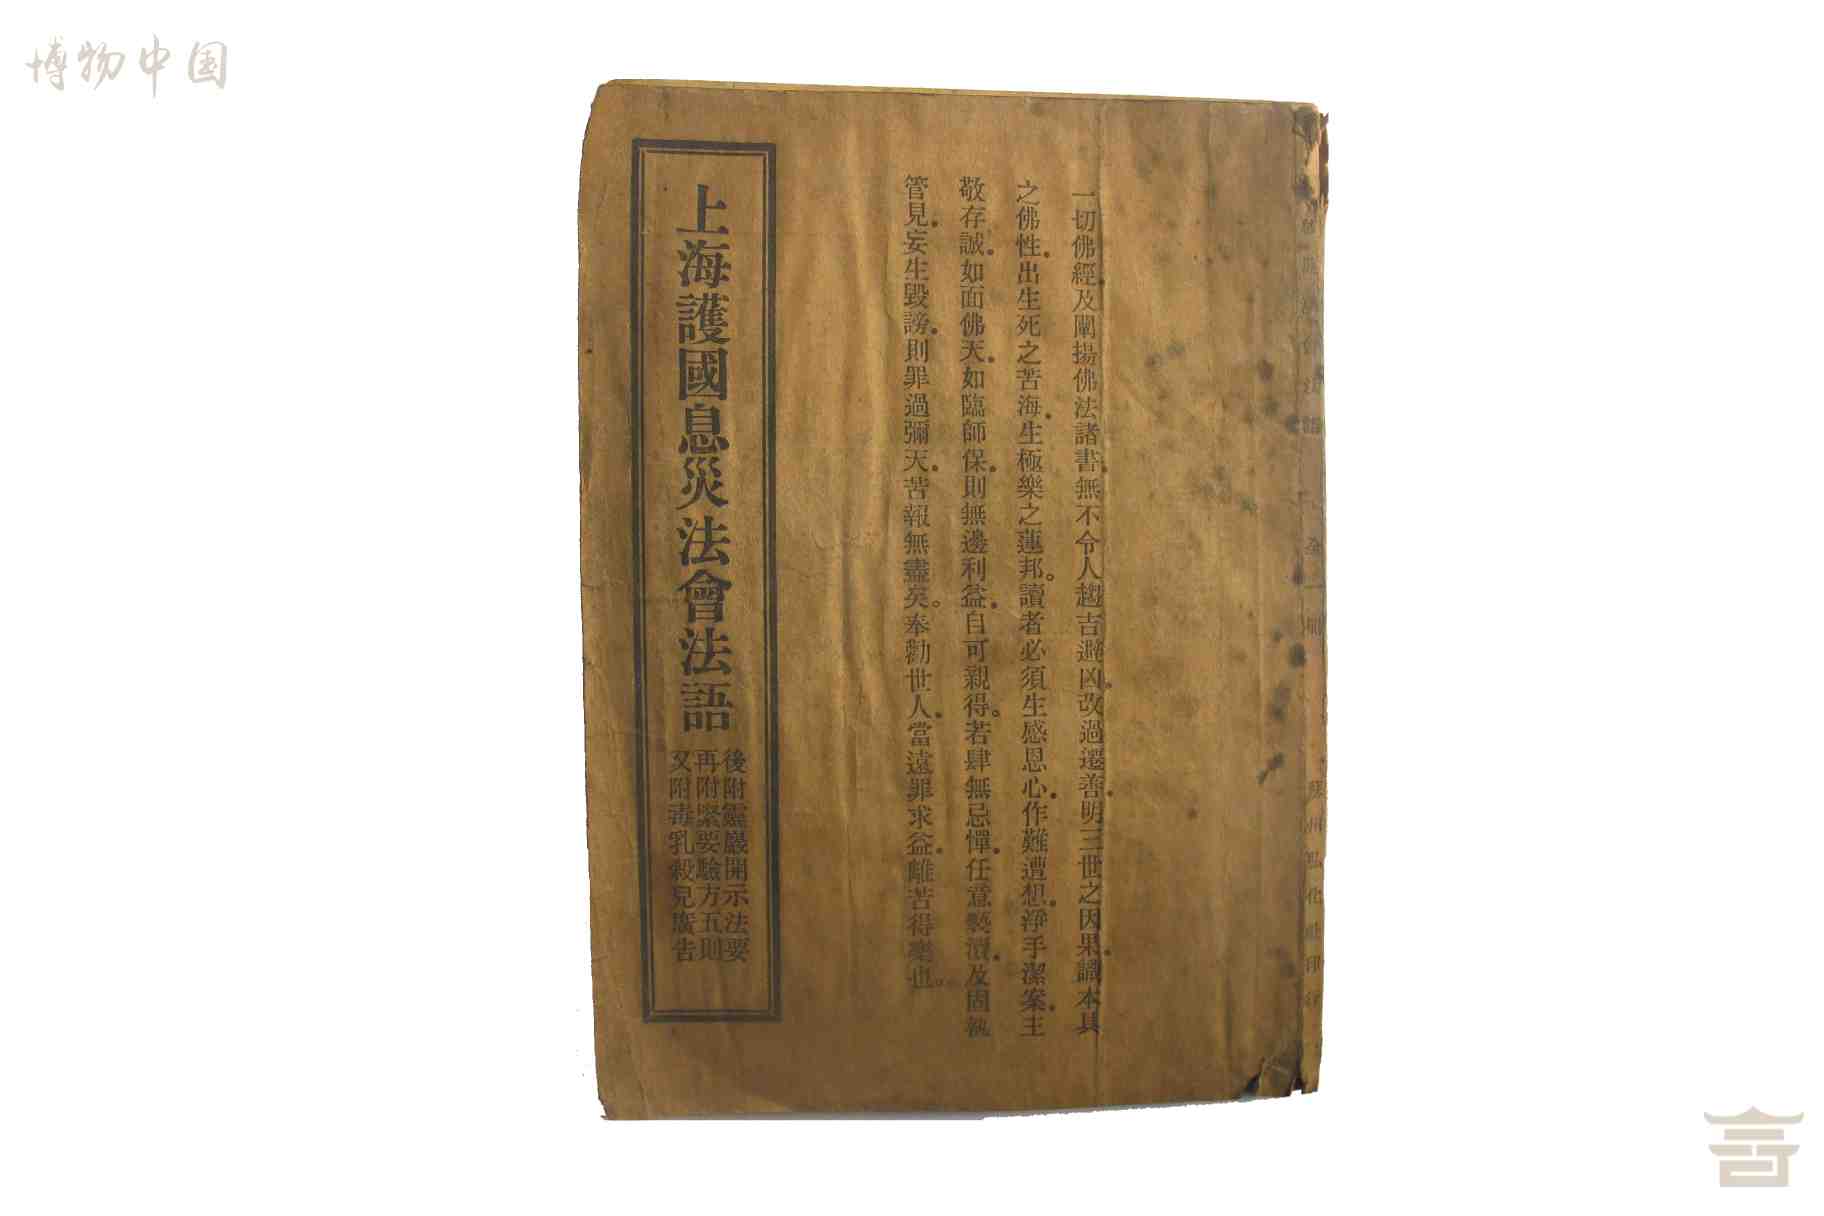 博物中国
一切佛經及闡揚佛法諸書無不令人趨吉避凶改過遷善明三世之因果識本具
之佛性出生死之苦海生極樂之蓮邦。讀者必須生感恩心作難遭想淨手潔案主
敬存誠如面佛天如臨師保則無邊利益自可親得。若肆無忌憚任意褻瀆及固執
管見妄生毀謗則罪過彌天苦報無盡矣。奉勸世人當遠罪求益離苦得樂也。
上海護國息災法會法語
後附靈巖開示法要
再附緊要驗方五則
又附毒乳殺兒廣告
全一冊
蘇州弘化社印行